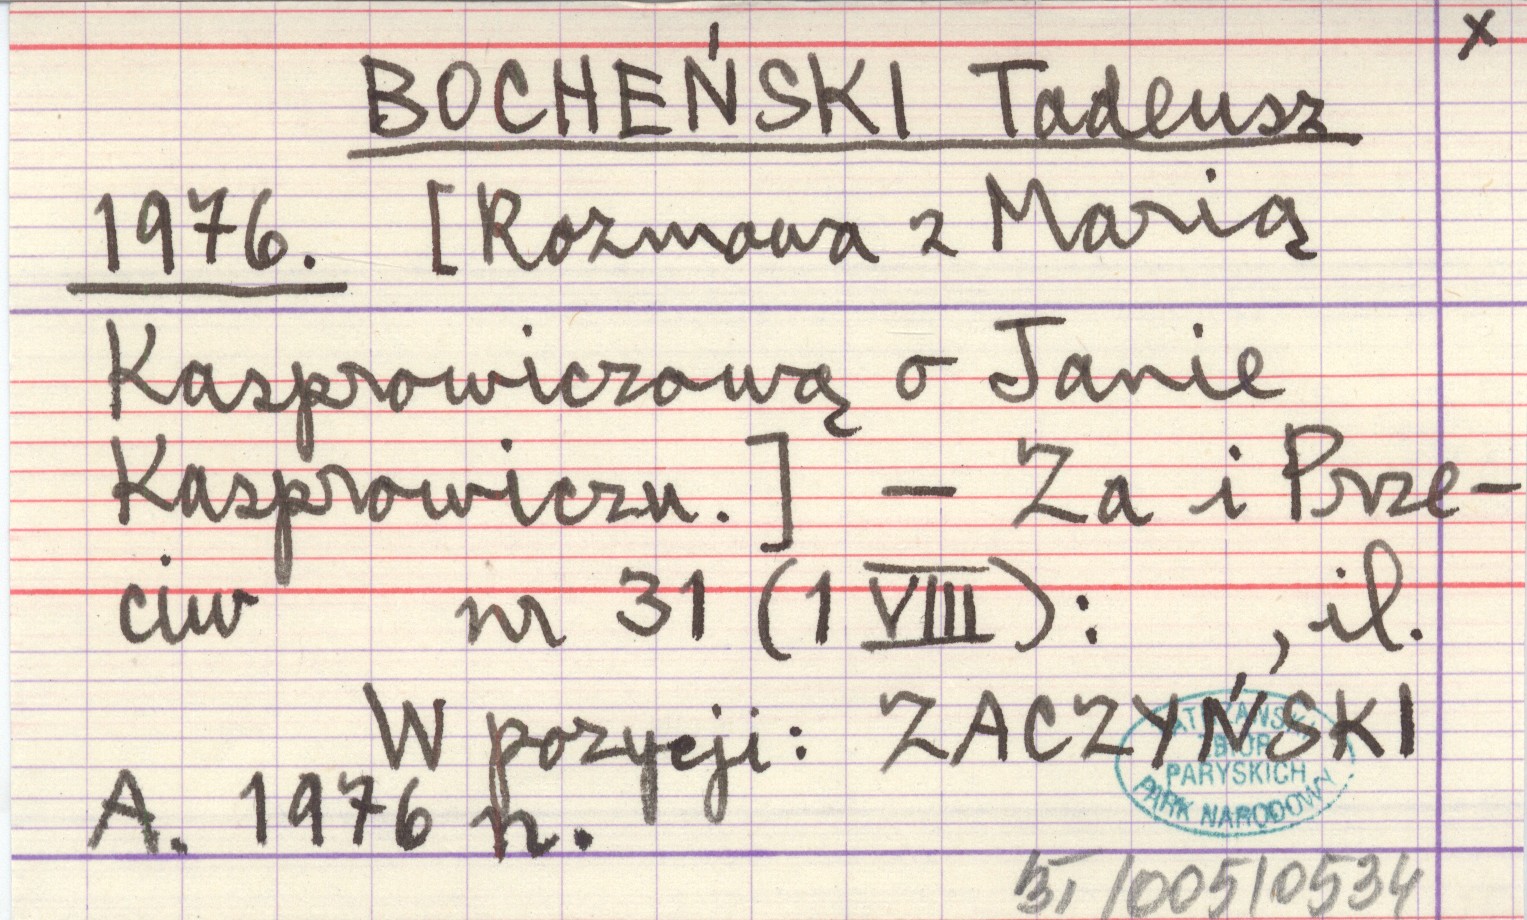 x
BOCHEŃSKI Tadeusz
1976. [Rozmowa z Marią
Kasprowiczową o Janie
Kasprowiczu.] — Za i Prze-
ciw nr 31 (1 VIII): , il.
W pozycji: ZACZYŃSKI
A. 1976 h.
TATRZAŃSKI
ZBIÓR
PARYSKICH
PARK NARODOWY
/005/0534